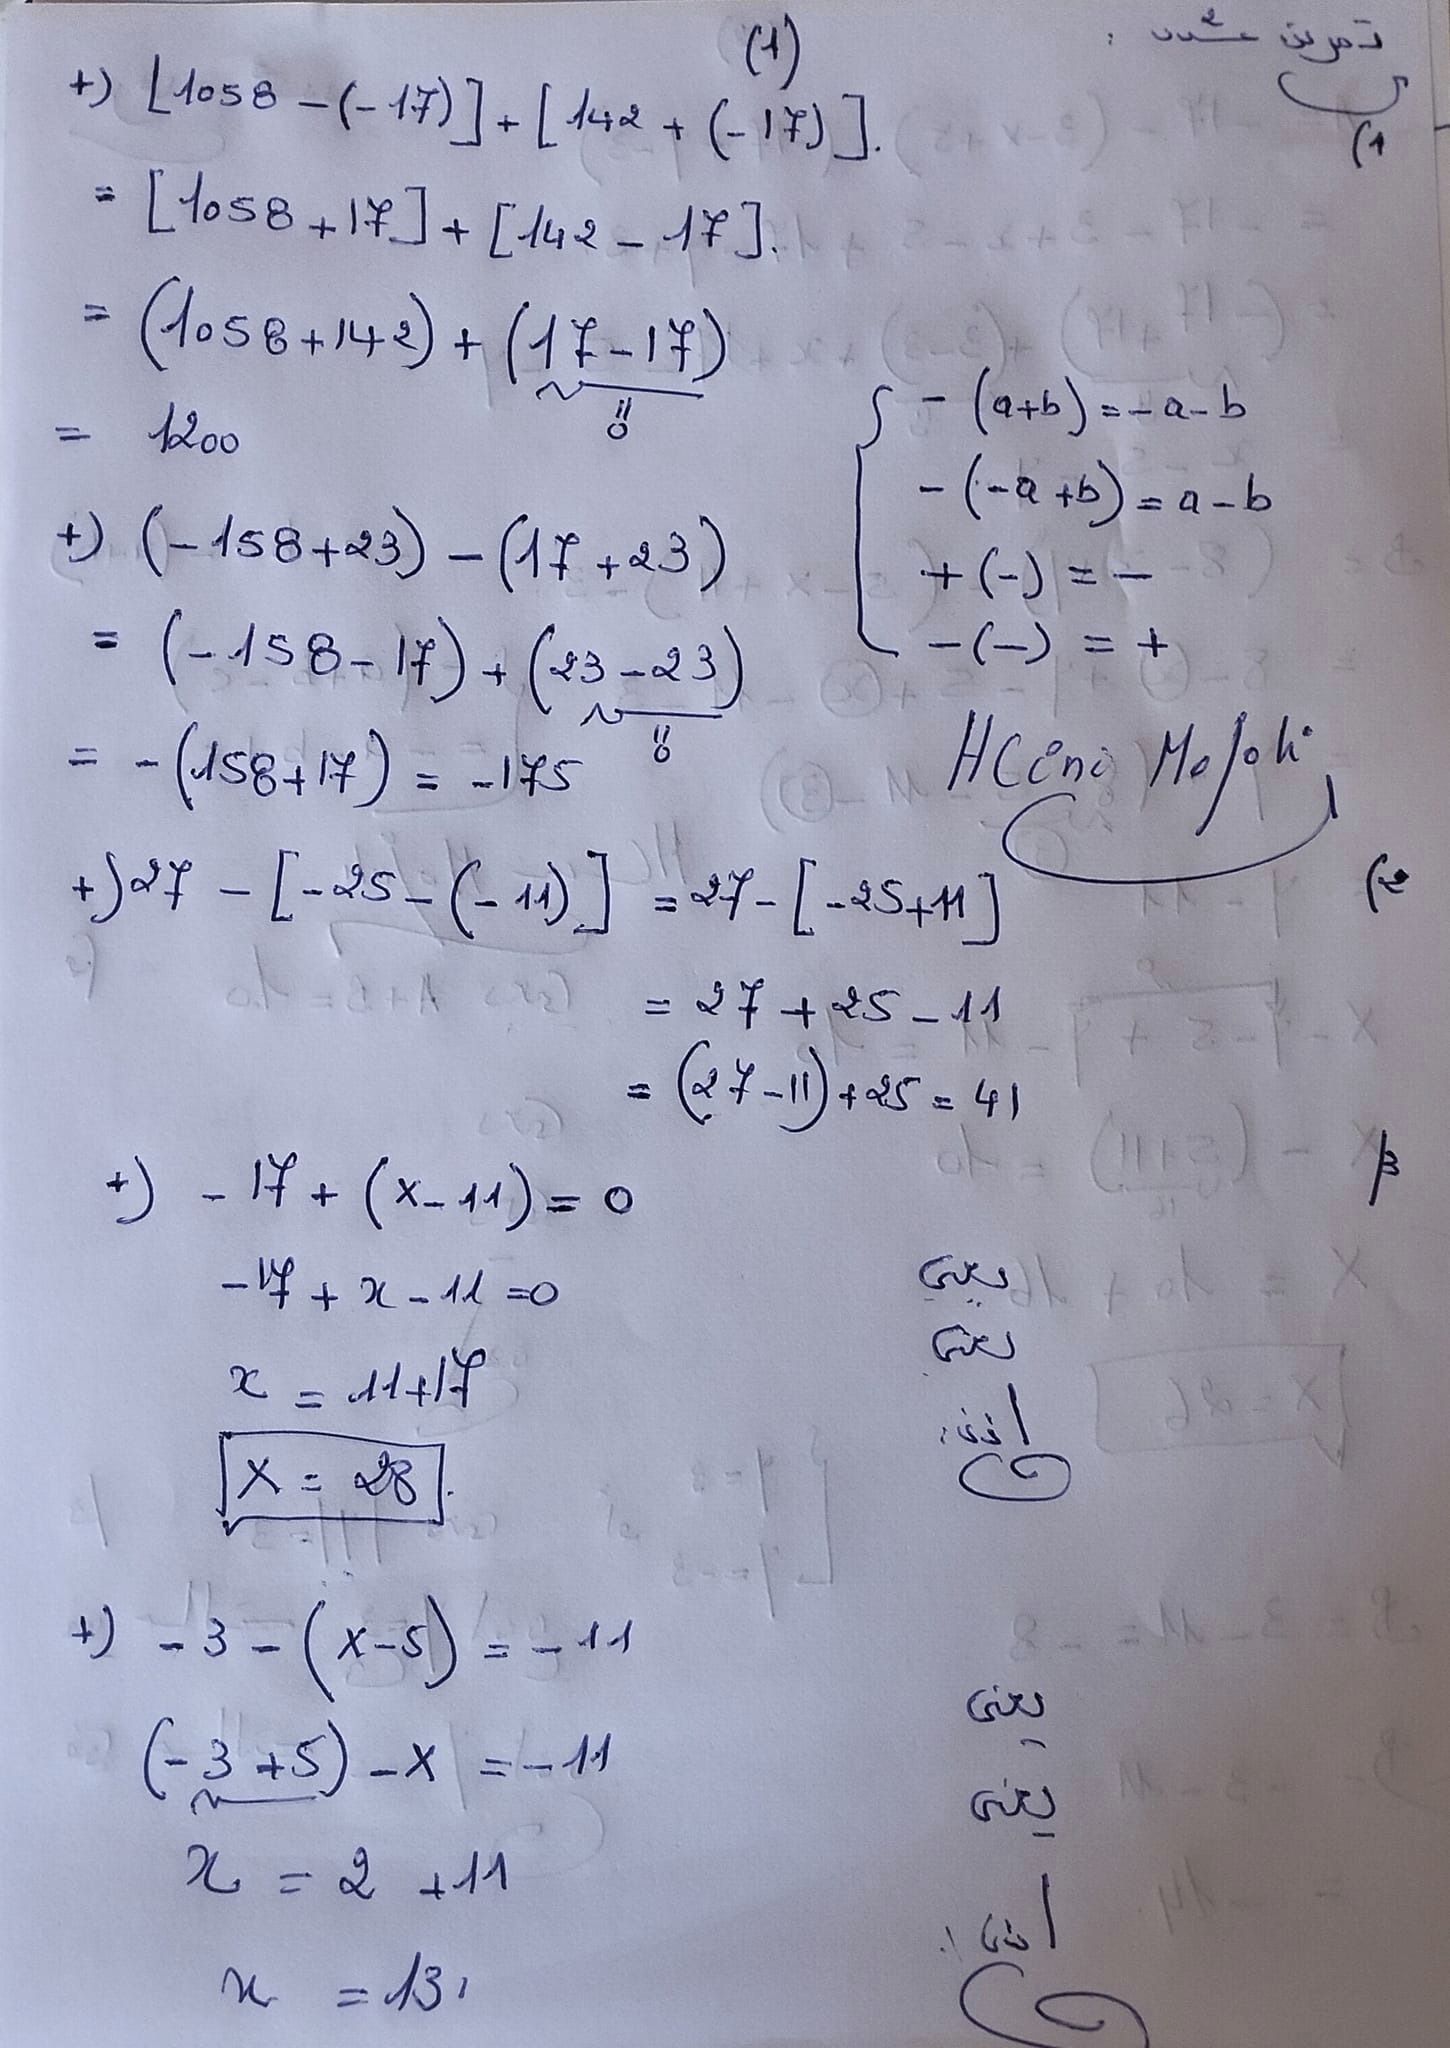 (1)
تمرين عـ2ـدد :
1)
+) [1058 - (-17)] + [142 + (-17)].
= [1058 + 17] + [142 - 17].
= (1058 + 142) + (17 - 17)
= 0
= 1200
- (a+b) = -a-b
- (-a+b) = a-b
+ (-) = -
- (-) = +
+) (-158+23) - (17+23)
= (-158-17) + (23-23)
= 0
= - (158+17) = -175
HCini
2)
+) 27 - [-25 - (-11)] = 27 - [-25+11]
= 27 + 25 - 11
= (27-11) + 25 = 41
3)
+) -17 + (x-11) = 0
-17 + x - 11 = 0 يعني
x = 11+17 يعني
x = 28. اذن:
+) -3 - (x-5) = -11
(-3+5) - x = -11 يعني
x = 2 + 11 يعني
x = 13. اذن: